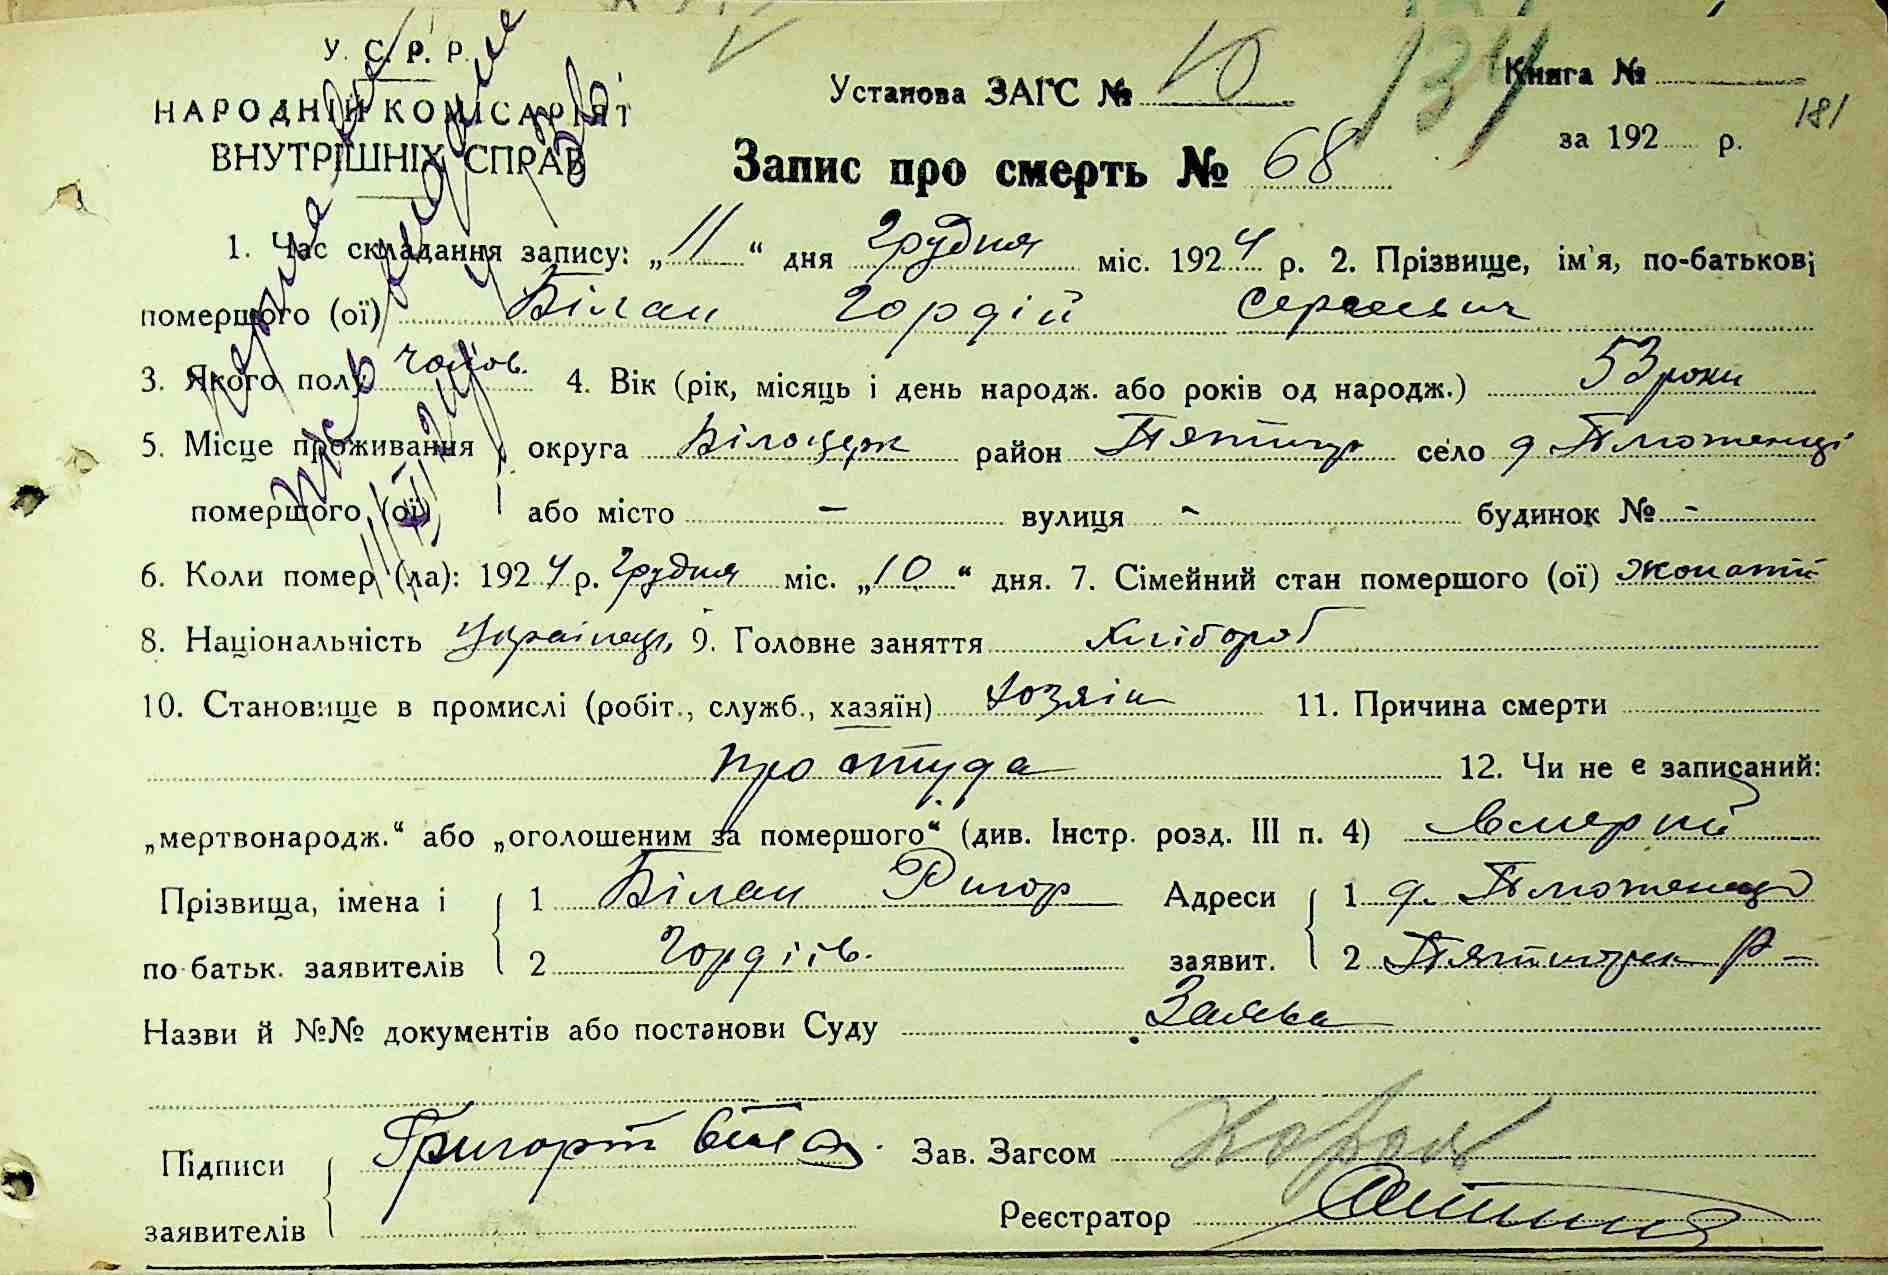 У. С. Р. Р.
НАРОДНІЙ КОМІСАРІЯТ
ВНУТРІШНІХ СПРАВ
Установа ЗАГС № 10
134
Книга №
181
за 192 р.
Запис про смерть № 68
1. Час складання запису: „11“ дня Грудня міс. 1924 р. 2. Прізвище, ім'я, по-батькові
помершого (ої) Білан Гордій Сергієвич
3. Якого полу чолов. 4. Вік (рік, місяць і день народж. або років од народж.) 53 роки
5. Місце проживання округа Білоцерк район Пятигор село д Плютенці
помершого (ої) або місто — вулиця - будинок № -
6. Коли помер (ла): 1924 р. Грудня міс. „10“ дня. 7. Сімейний стан помершого (ої) жонатий
8. Національність Українец, 9. Головне заняття хлібороб
10. Становище в промислі (робіт., служб., хазяїн) хозяін 11. Причина смерти
простуда 12. Чи не є записаний:
„мертвонародж.“ або „оголошеним за помершого“ (див. Інстр. розд. III п. 4) вмерший
Прізвища, імена і 1 Білан Ригор Адреси 1 д. Плютенці
по батьк. заявителів 2 Гордіїв. заявит. 2 Пятигорск р-
Назви й №№ документів або постанови Суду Заява
Підписи Григорій Зав. Загсом
заявителів Реєстратор